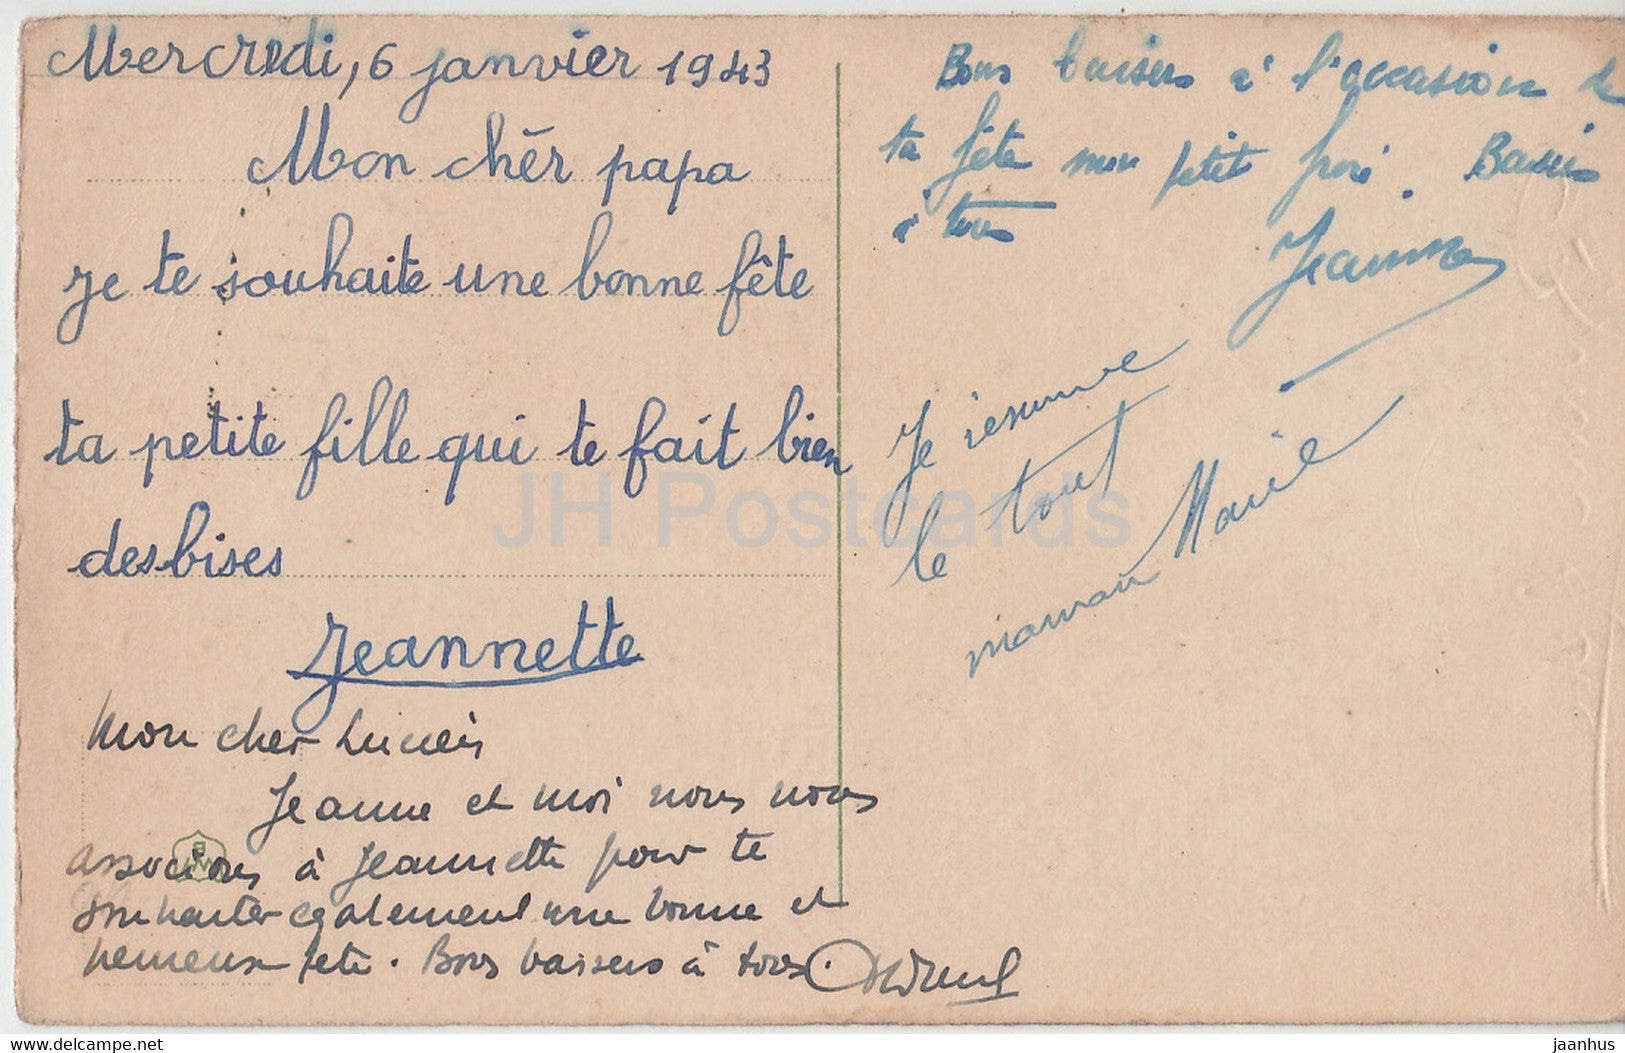 Mercredi, 6 janvier 1943
Mon chēr papa
je te souhaite une bonne fête
ta petite fille qui te fait bien
des bises
Jeannette
Mon cher Lucien
Jeanne et moi nous nous
associons à Jeannette pour te
souhaiter egalement une bonne et
heureuse fete. Bons baisers à tous.
Bons baisers à l'occasion de
ta fête mon petit frère. Baisers
à tous
Jeanne
Je résume
le tout
maman Marie
JH Postcards
jaanhus.com
jaanhus